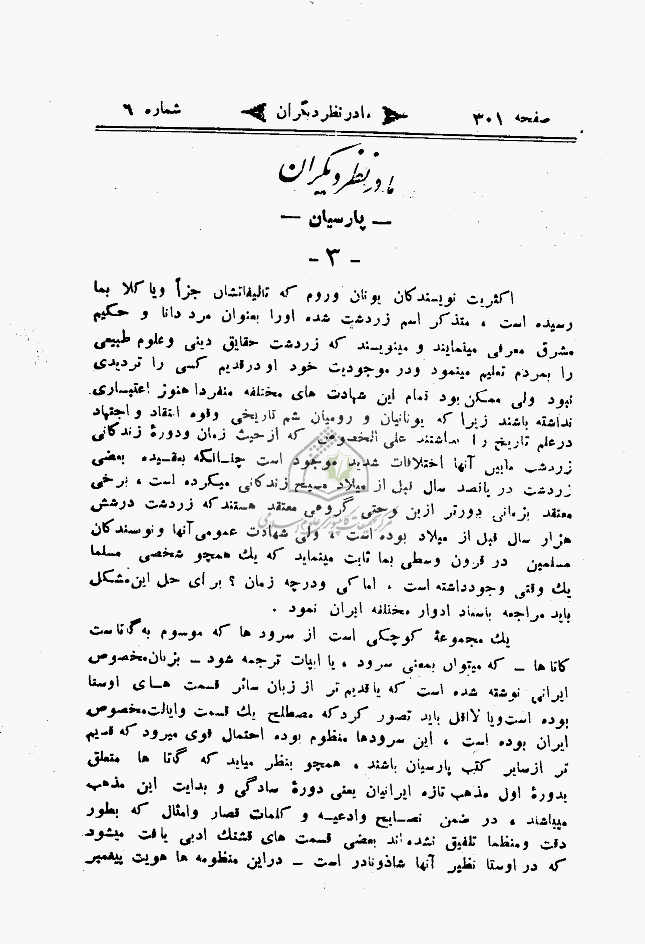 صفحه ۳۰۱
ما در نظر دیگران
شماره ۶
ما در نظر دیگران
— پارسیان —
- ۳ -
اکثریت نویسندگان یونان وروم که تالیفاتشان جزأ ویا کلا بما
رسیده است ، متذکر اسم زردشت شده اورا بعنوان مرد دانا و حکیم
مشرق معرفی مینمایند و مینویسند که زردشت حقایق دینی وعلوم طبیعی
را بمردم تعلیم مینمود ودر موجودیت خود او درقدیم کسی را تردیدی
نبود ولی ممکن بود تمام این شهادت های مختلفه منفردا هنوز اعتباری
نداشته باشند زیرا که یونانیان و رومیان شم تاریخی وقوه انتقاد واجتهاد
درعلم تاریخ را نداشتند علی الخصوص که ازحیث زمان ودورهٔ زندگانی
زردشت مابین آنها اختلافات شدید موجود است چنانکه بعقیده بعضی
زردشت در پانصد سال قبل از میلاد مسیح زندگانی میکرده است ، برخی
معتقد بزمانی دورتر ازین وحتی گروهی معتقد هستند که زردشت درشش
هزار سال قبل از میلاد بوده است ، ولی شهادت عمومی آنها ونویسندگان
مسلمین در قرون وسطی بما ثابت مینماید که یك همچو شخصی مسلما
یك وقتی وجودداشته است ، اما کی ودرچه زمان ؟ برای حل این مشکل
باید مراجعه باسناد ادوار مختلفه ایران نمود .
یك مجموعهٔ کوچکی است از سرود ها که موسوم به گاتاست
کاتا ها – که میتوان بمعنی سرود ، یا ابیات ترجمه شود – بزبان مخصوص
ایرانی نوشته شده است که یا قدیم تر از زبان سائر قسمت هـای اوستا
بوده است ویا لااقل باید تصور کرد که مصطلح یك قسمت وایالت مخصوص
ایران بوده است ، این سرودها منظوم بوده احتمال قوی میرود که قدیم
تر از سایر کتب پارسیان باشند ، همچو بنظر میاید که گاتا ها متعلق
بدورهٔ اول مذهب تازه ایرانیان یعنی دورهٔ سادگی و بدایت این مذهب
میباشند ، در ضمن نصـایح وادعیـه و کلمات قصار وامثال که بطور
دقت ومنظما تلفیق نشده اند بعضی قسمت های قشنك ادبی یافت میشود
که در اوستا نظیر آنها شاذونادر است – دراین منظومه ها هویت پیغمبر